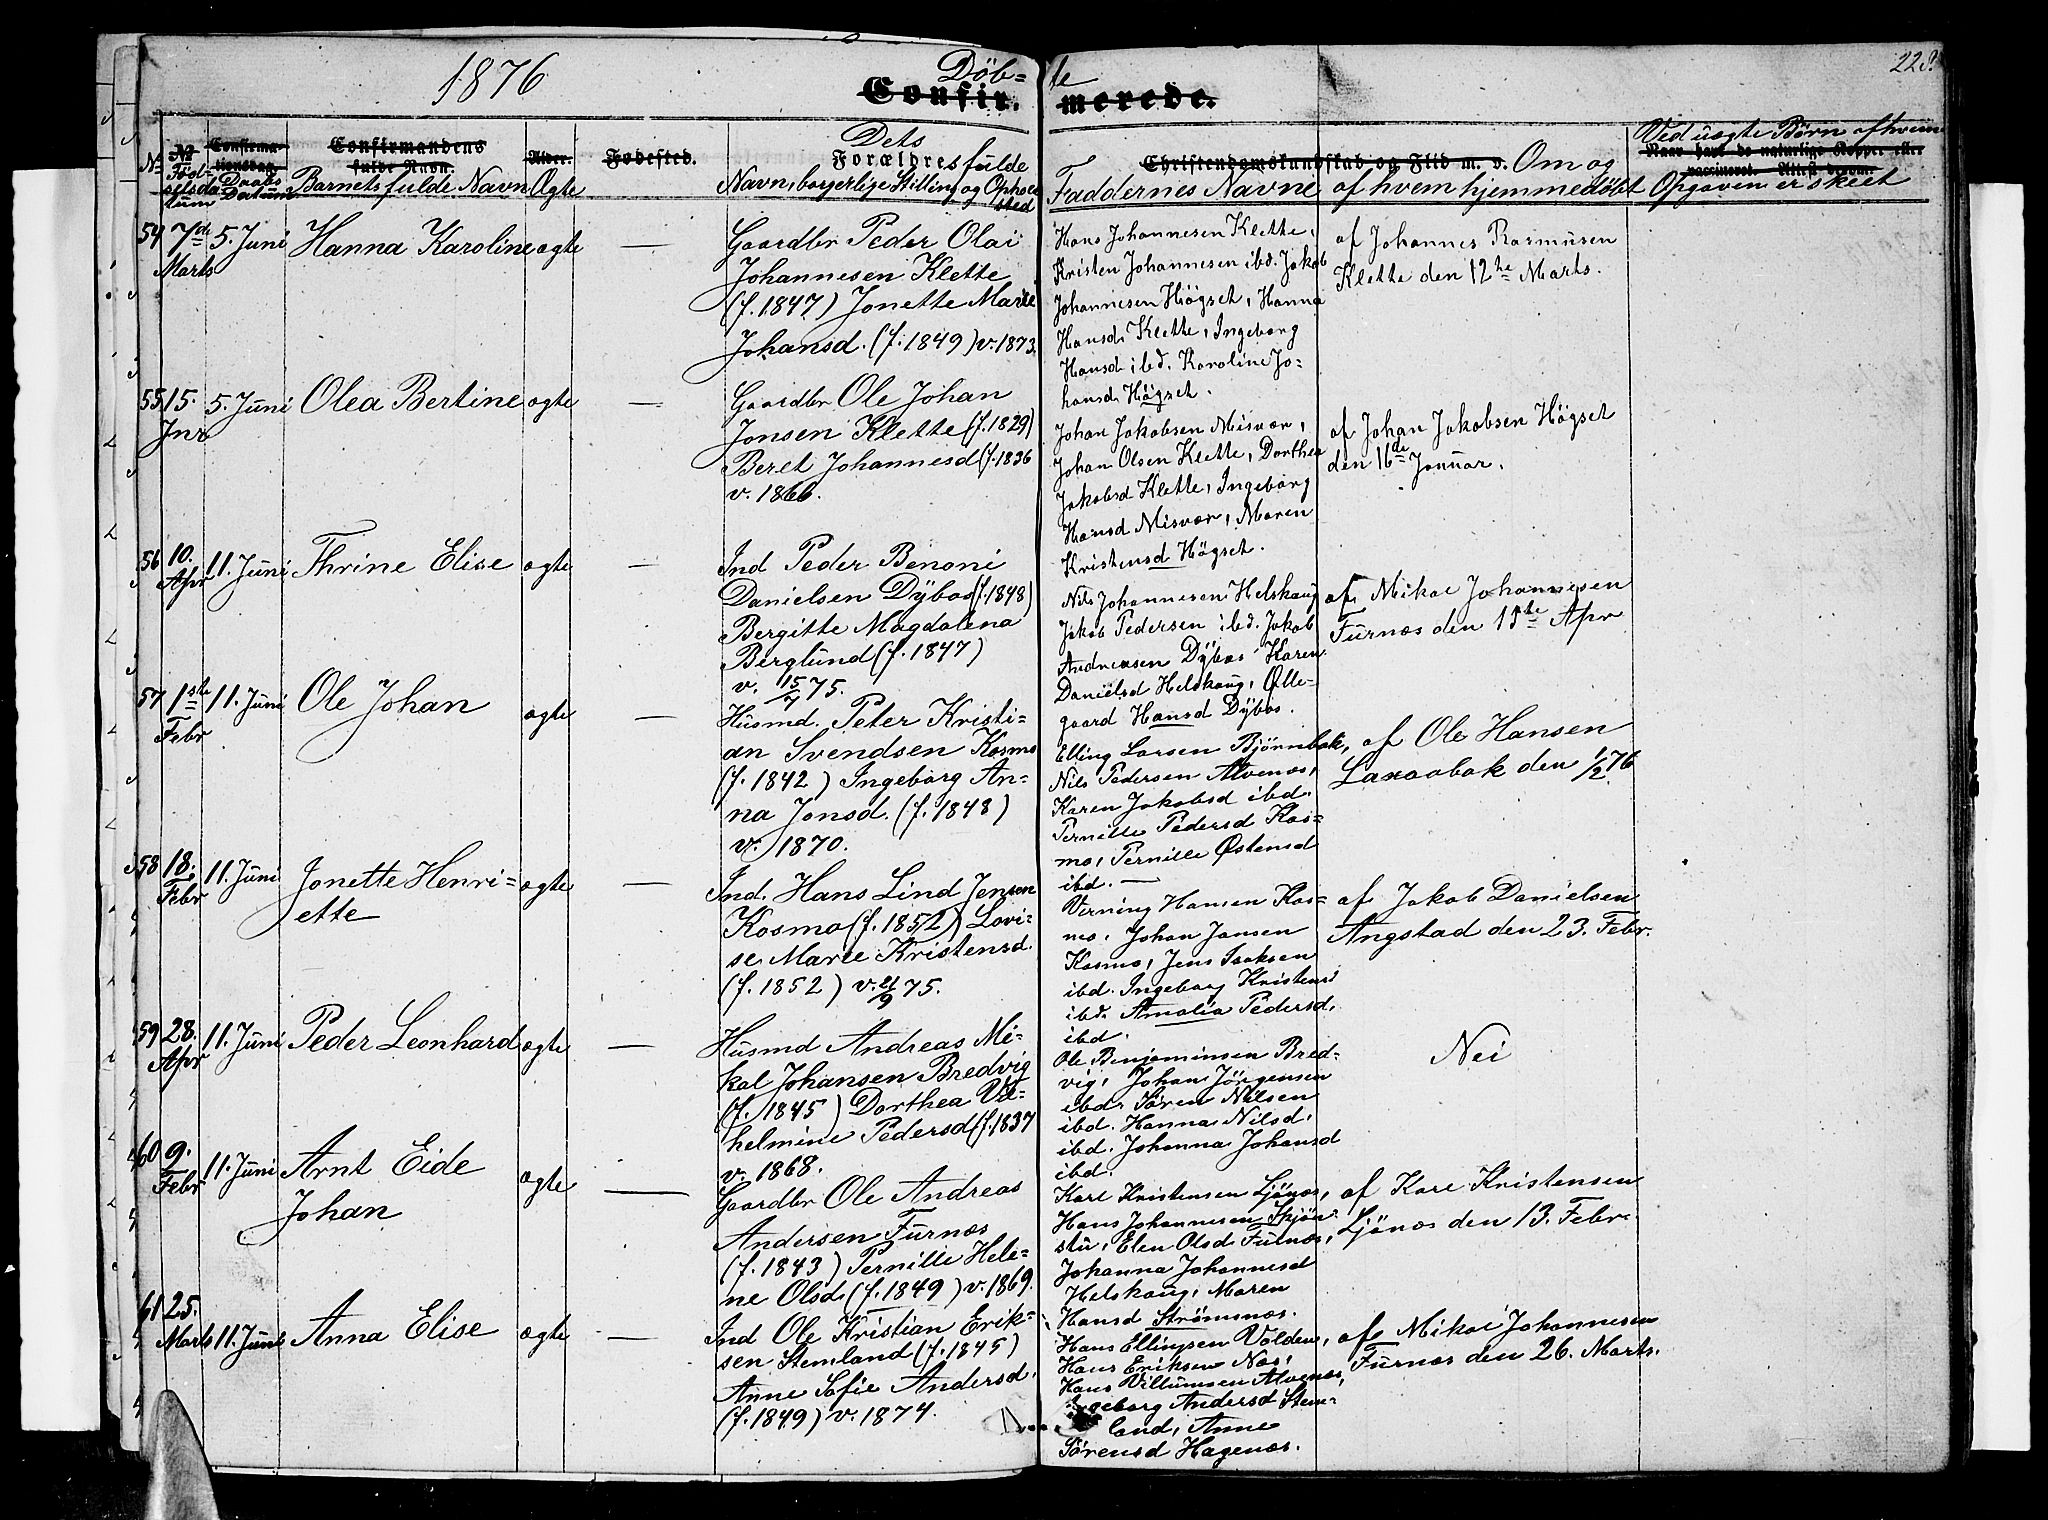 1876
Döb= te
Confir. merede.
228
No
No
Fød-
selsda
tum
Confirma-
tionsdag.
Daabs
Datum
Confirmandens
fulde Navn.
Barnets fulde Navn
Alder.
Ægte
Fødested.
Dets
Forældres fulde
Navn, borgerlige Stilling og Opholds
sted
Christendomskundskab og Flid m. v. Om og
Faddernes Navne af hvem hjemmedöbt
Ved uægte Börn af hvem
Naar havt de naturlige Kopper eller
vaccineret. Attest derom.
Opgaven er skeet
54 7de Marts 5. Juni Hanna Karoline ægte —
Gaardbr Peder Olai
Johannesen Klette
(f. 1847) Jonette Marie
Johansd. (f. 1849) v. 1873.
Hans Johannesen Klette,
Kristen Johannesen ibd. Jakob
Johannesen Högset, Hanna
Hansd. Klette, Ingeborg
Hansd ibd. Karoline Jo-
hansd. Högset.
af Johannes Rasmusen
Klette den 12te Marts.
55 15. Jnr 5. Juni Olea Bertine ægte —
Gaardbr Ole Johan
Jonsen Klette (f. 1829)
Beret Johannesd (f. 1836
v. 1866.
Johan Jakobsen Misvær,
Johan Olsen Klette, Dorthea
Jakobsd Klette, Ingeborg
Hansd Misvær, Maren
Kristensd Högset.
af Johan Jakobsen Högset
den 16de Januar.
56 10. Apr 11. Juni Thrine Elise ægte —
Ind Peder Benoni
Danielsen Dybos (f. 1848)
Bergitte Magdalena
Berglund (f. 1847)
v. 15/7 75.
Nils Johannesen Helskaug
Jakob Pedersen ibd. Jakob
Andreasen Dybos Karen
Danielsd Helskaug, Olle-
gaard Hansd Dybos.
af Mikal Johannesen
Furnæs den 15te Apr
57 1ste Febr 11. Juni Ole Johan ægte —
Husmd. Peter Kristi-
an Svendsen Kosmo
(f. 1842) Ingeborg An-
na Jonsd. (f. 1848)
v. 1870.
Elling Larsen Björnbak,
Nils Pedersen Alvenæs,
Karen Jakobsd ibd.
Pernille Pedersd Kos-
mo, Pernille Østensd
ibd. —
af Ole Hansen
Laxaabak den 1/2 76
58 18. Febr 11. Juni Jonette Henri=
ette ægte —
Ind. Hans Lind Jensen
Kosmo (f. 1852) Lovi-
se Marie Kristensd.
(f. 1852) v. 75.
Verning Hansen Kos=
mo, Johan Jansen
Kosmo, Jens Isaksen
ibd. Ingeborg Kristensd
ibd. Amalia Pedersd.
ibd.
af Jakob Danielsen
Angstad den 23. Febr.
59 28. Apr 11. Juni Peder Leonhard ægte —
Husmd Andreas Mi-
kal Johansen Bredvig
(f. 1845) Dorthea Vil-
helmine Pedersd (f. 1837
v. 1868.
Ole Benjaminsen Bred-
vig, Johan Jörgensen
ibd. Sören Nilsen
ibd. Hanna Nilsd.
ibd. Johanna Johansd
ibd.
Nei
60 9. Febr 11. Juni Arnt Eide
Johan ægte —
Gaardbr Ole Andreas
Andersen Furnæs
(f. 1843) Pernille Hele-
ne Olsd (f. 1849) v. 1869.
Karl Kristensen Ljönæs,
Hans Johannesen Skjön
stu, Elen Olsd Furnæs,
Johanna Johannesd
Helskaug, Maren
Hansd Strömsnæs.
af Karl Kristensen
Ljönæs den 13. Febr.
61 25. Marts 11. Juni Anna Elise ægte —
Ind Ole Kristian Erik-
sen Stemland (f. 1845)
Anne Sofie Andersd.
(f. 1849) v. 1874.
Hans Ellingsen Volden,
Hans Eriksen Næs,
Hans Villumsen Alvenæs,
Ingeborg Andersd Stem-
land, Anne
Sörensd Hagenæs.
af Mikal Johannesen
Furnæs den 26. Marts.